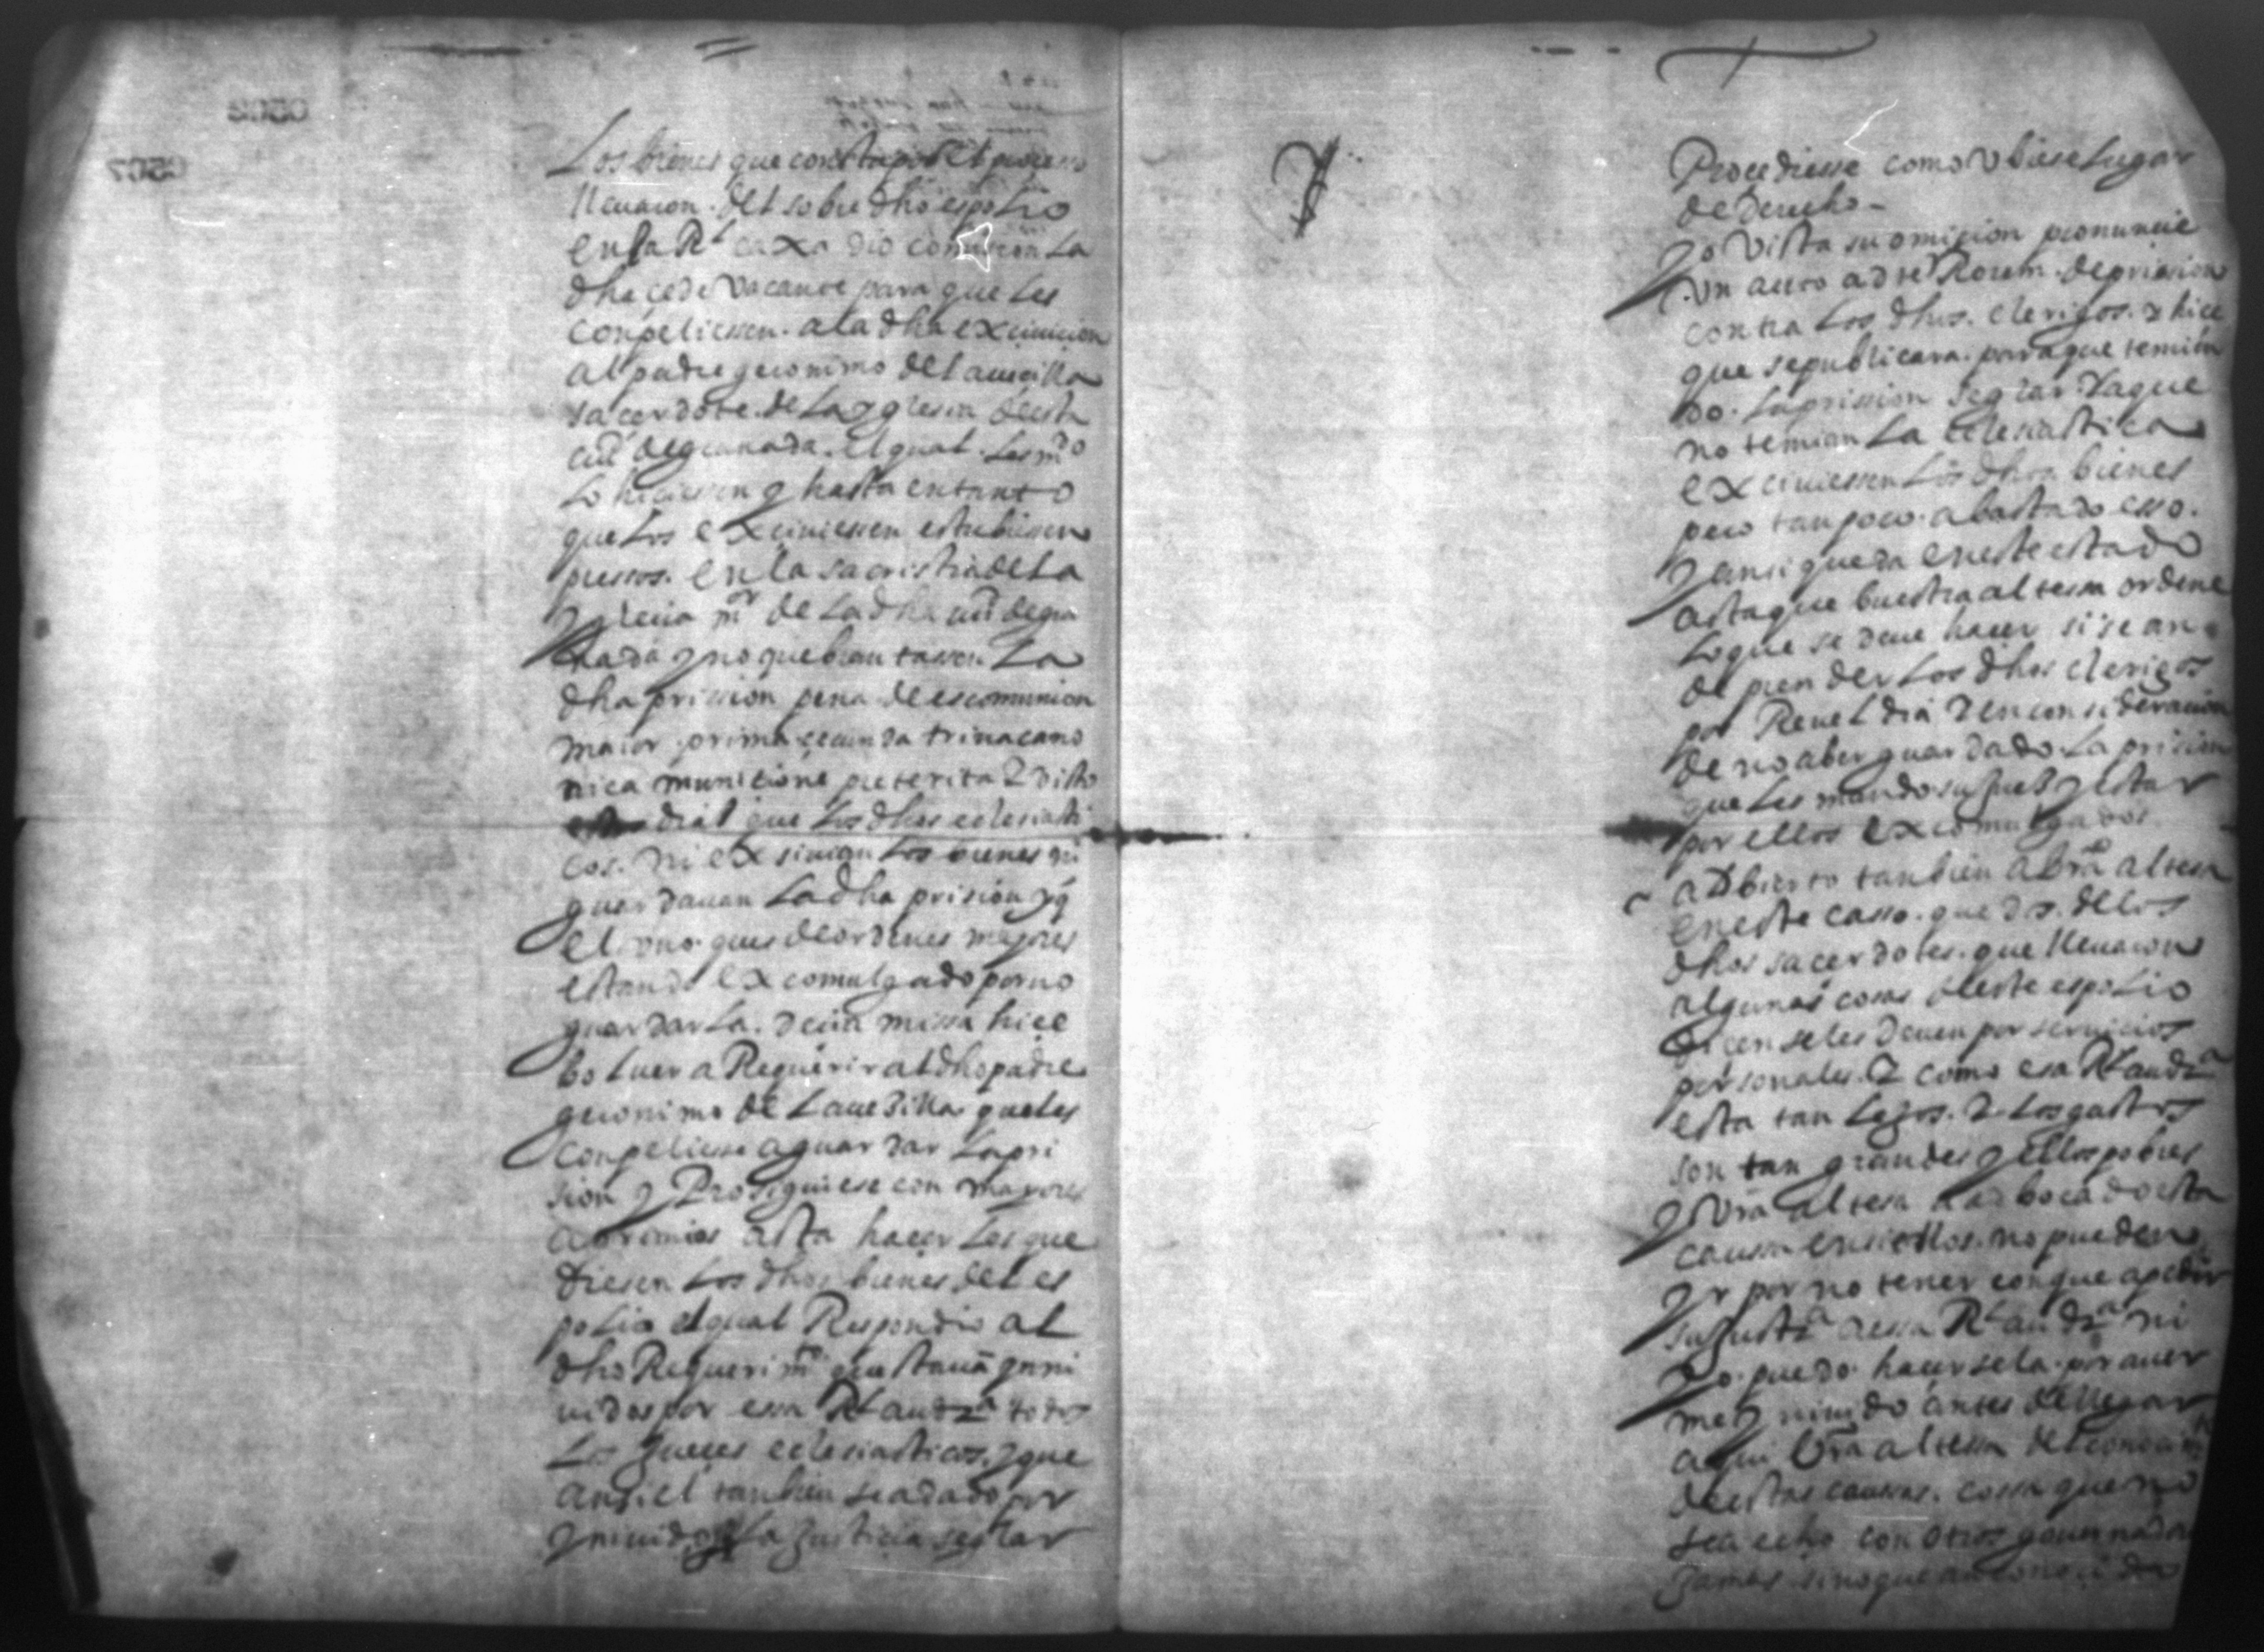 Los bienes que consta por el proceso
lleuaron. del sobre dho espolio
en la Rl caxa dio comision La
dha cede vacante para que les
conpeliessen. a la dha exciuicion
al padre geronimo del auecilla
sacerdote. de La yglesia deesta
ciud de granada. el qual. Les mdo
Lo hiciessen y hasta en tanto
que Los exciuiessen estubiesen
pressos. en la sacristia de La
yglecia mor de La dha ciud degra
nada y no quebrantassen La
dha prission pena de escomunion
maior. prima secunda trina cano
nica munitione preterita Y visto
que Los dhos eclesiasti
cos. ni exsiuian Los bienes ni
guardauan La dha prision yq
el vno. ques de ordenes mejores
estando excomulgado por no
guardarLa. decia missa hice
boLuer a Requerir al dho padre
geronimo de Lauezilla que les
conpeliesse a guardar La pri
sion y Prosiguiese con mayores
apremios asta hacer Les que
diesen Los dhos bienes del es
poLio el qual Respondio al
dho Requerimto questauã ynni
uidos por essa Rl audza todos
Los Jueces eclesiasticos. y que
ansi el tanbien se a dado por
yniuido La Justicia seglar
00502
0507
Procediesse como vbiese Lugar
de Derecho-
Yo Vista su omicion pronuncie
vn auto ad terrorem. de prision
contra Los dhos. clerigos. Y hice
que se publicara. para que temien
do. La prission seglar Ya que
no temian La eclesiastica
exciuiessen Los dhos bienes
pero tanpoco. a bastado esso.
Y ansi queda en este estado
asta que buestra altessa ordene
Lo que se deue hacer si se an
de prender Los dhos clerigos
por Reueldia Y en consideracion
de no aber guardado La prision
que Les mando su Juez y estar
por ellos excomulgados
adbierto tanbien a bra altessa
en este casso. que dos. de los
dhos sacerdotes. que lleuaron
algunas cosas deeste espoLio
dicen se les deuen por seruicios
personales. Y como esa Rl audza
esta tan Lejos. Y Los gastos
son tan grandes y ellos pobres
y Vra altesa a adbocado esta
causa en si ellos. no pueden
yr por no tener con que a pedir
su Justza a essa Rl audza ni
yo. puedo. hacersela. por auer
me yniuido antes de llegar
aqui Vra altessa del conocimto
deestas caussas. cossa que no
se a echo con otros gouernadores
Jamas sino que an conocido